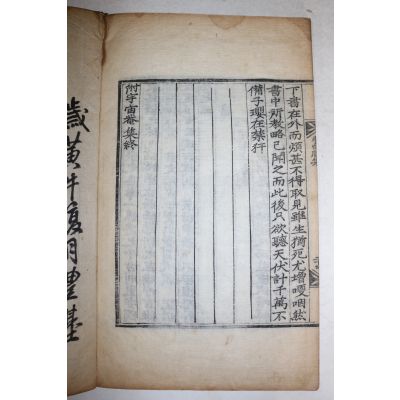 下書在外而煩甚不得取見雖生猶死尤增哽咽然
書中所教略已聞之而此後只欲聽天伏計千萬不
備子瓔在禁行
附宇宙菴集終
歲黃牛復月豊基